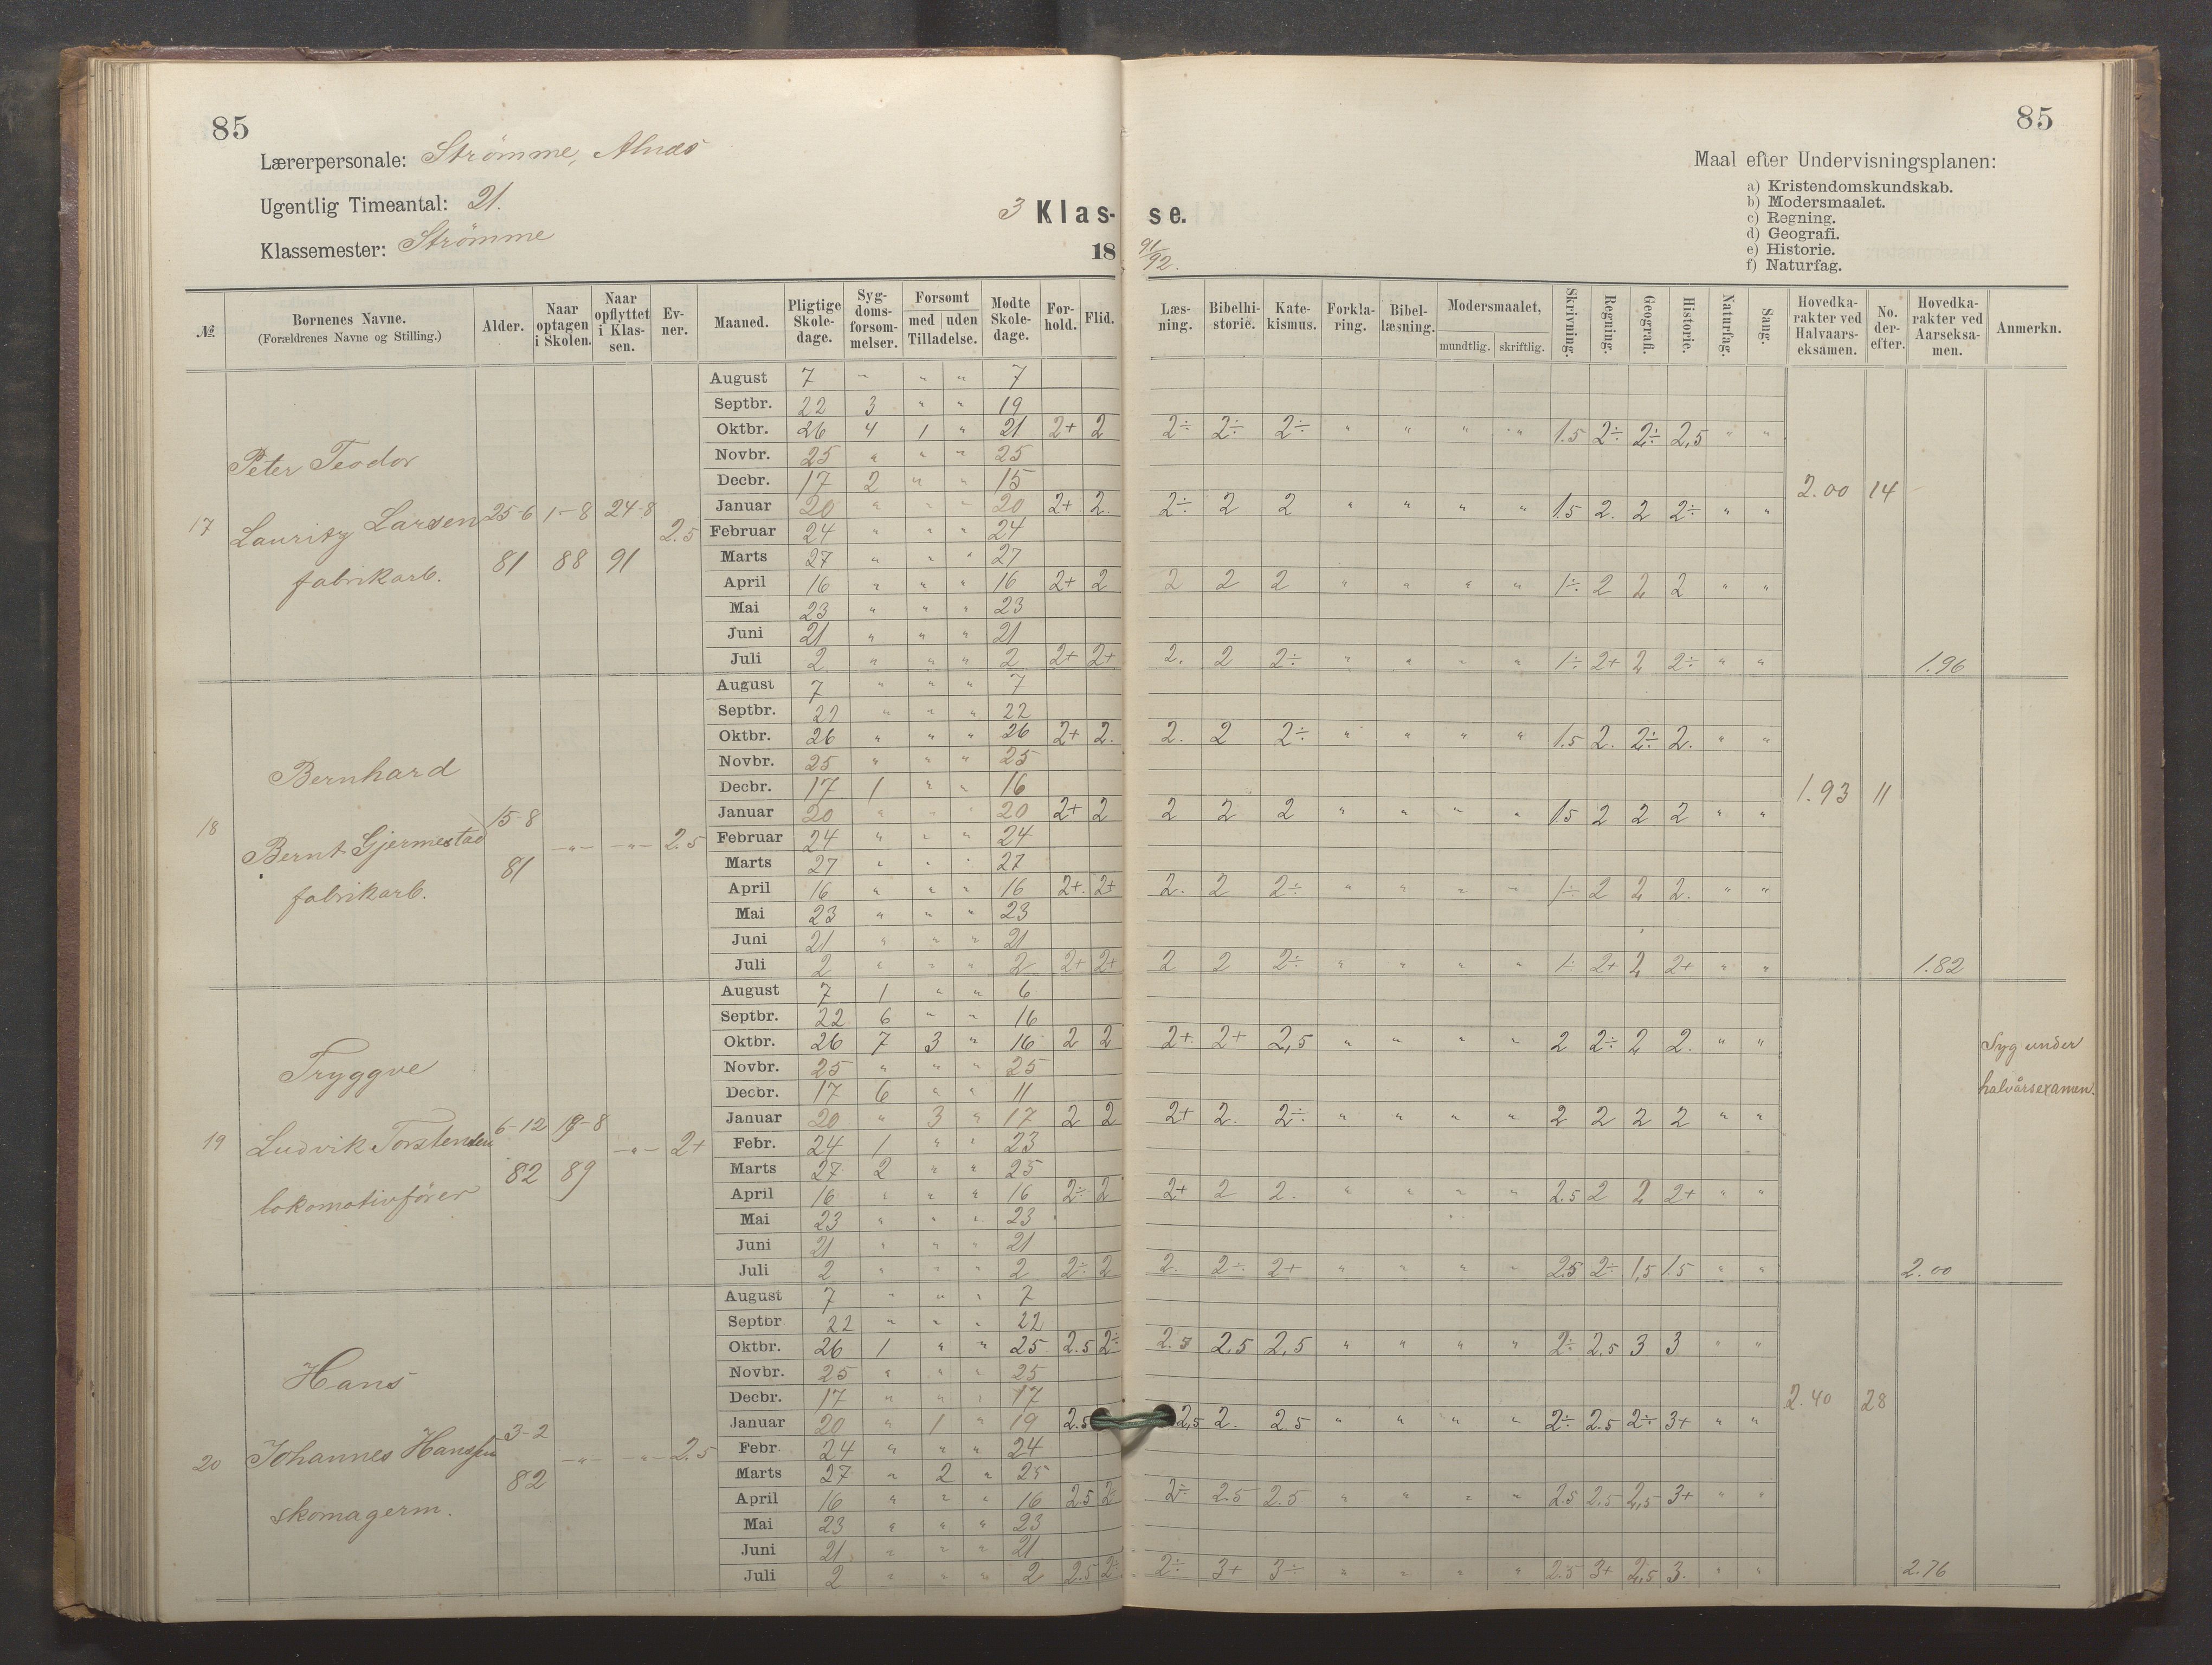 85
Lærerpersonale: Strømme, Alnæs
Ugentlig Timeantal: 21.
Klassemester: Strømme
3 Klas-
18
85
Maal efter Undervisningsplanen:
a) Kristendomskundskab.
b) Modersmaalet.
c) Regning.
d) Geografi.
e) Historie.
f) Naturfag.
se.
91/92.
№. Børnenes Navne. (Forældrenes Navne og Stilling.) Alder. Naar optagen i Skolen. Naar opflyttet i Klassen. Ev-ner. Maaned. Pligtige Skole-dage. Syg-doms-forsøm-melser. Forsømt med uden Tilladelse. Mødte Skole-dage. For-hold. Flid. Læs-ning. Bibelhi-storie. Kate-kismus. Forkla-ring. Bibel-læsning. Modersmaalet, mundtlig. skriftlig. Skrivning. Regning. Geografi. Historie. Naturfag. Sang. Hovedka-rakter ved Halvaars-eksamen. No. der-efter. Hovedka-rakter ved Aarseksa-men. Anmerkn.
17 Peter Teodor
Lauritz Larsen
fabrikarb.
25-6 81 1-8 88 24-8 91 2.5
August 7 " " " 7
Septbr. 22 3 " " 19
Oktbr. 26 4 1 " 21 2+ 2 2÷ 2÷ 2÷ " " " " 1.5 2÷ 2÷ 2,5 " "
Novbr. 25 " " " 25
Decbr. 17 2 " " 15
Januar 20 " " " 20 2+ 2. 2÷ 2 2 " " " " 1.5 2. 2 2÷ " " 2.00 14
Februar 24 " " " 24
Marts 27 " " " 27
April 16 " " " 16 2+ 2 2 2 2 " " " " 1÷ 2 2 2 " "
Mai 23 " " " 23
Juni 21 " " " 21
Juli 2 " " " 2 2+ 2+ 2. 2 2÷ " " " " 1÷ 2+ 2 2÷ " " 1.96
18 Bernhard
Bernt Gjermestad
fabrikarb.
15-8 81 -"- -"- 2.5
August 7 " " " 7
Septbr. 22 " " " 22
Oktbr. 26 " " " 26 2+ 2. 2. 2 2÷ " " " " 1.5 2. 2÷ 2. " "
Novbr. 25 " " " 25
Decbr. 17 1 " " 16
Januar 20 " " " 20 2+ 2 2 2 2 " " " " 1.5 2 2 2 " " 1.93 11
Februar 24 " " " 24
Marts 27 " " " 27
April 16 " " " 16 2+. 2+ 2. 2 2÷ " " " " 1÷ 2 2 2. " "
Mai 23 " " " 23
Juni 21 " " " 21
Juli 2 " " " 2 2+ 2+ 2 2 2÷ " " " " 1÷ 2+ 2 2+ " " 1.82
19 Tryggve
Ludvik Torstensen
lokomotivfører
6-12 82 89 -"- 2+
August 7 1 " " 6
Septbr. 22 6 " " 16
Oktbr. 26 7 3 " 16 2 2 2+. 2+ 2,5 " " " " 2 2÷ 2 2. " " Syg under
halvårsexamen.
Novbr. 25 " " " 25
Decbr. 17 6 " " 11
Januar 20 " 3 " 17 2 2 2+ 2. 2÷ " " " " 2 2 2 2 " "
Febr. 24 1 " " 23
Marts 27 2 " " 25
April 16 " " " 16 2÷ 2 2+ 2 2. " " " " 2.5 2 2 2+ " "
Mai 23 " " " 23
Juni 21 " " " 21
Juli 2 " " " 2 2÷ 2 2. 2÷ 2+ " " " " 2.5 2÷ 1,5 1.5 " " 2.00
20 Hans
Johannes Hanssen
skomagerm.
3-2 82 -"- -"- 2.5
August 7 " " " 7
Septbr 22 " " " 22
Oktbr. 26 1 " " 25 2.5 2÷ 2.5 2,5 2,5 " " " " 2÷ 2.5 3 3 " "
Novbr. 25 " " " 25
Decbr. 17 " " " 17
Januar 20 " 1 " 19 2.5 2,5 2. 2.5 " " " " 2÷ 2.5 2÷ 3+ " " 2.40 28
Febr. 24 " " " 24
Marts 27 " 2 " 25
April 16 " " " 16 2.5 2÷ 2÷ 2.5 2.5 " " " " 2.5 2,5 2,5 3+ " "
Mai 23 " " " 23
Juni 21 " " " 21
Juli 2 " " " 2 2.5 2÷ 2÷ 3+ 3÷ " " " " 2.5 3+ 2,5 3. " " 2.76